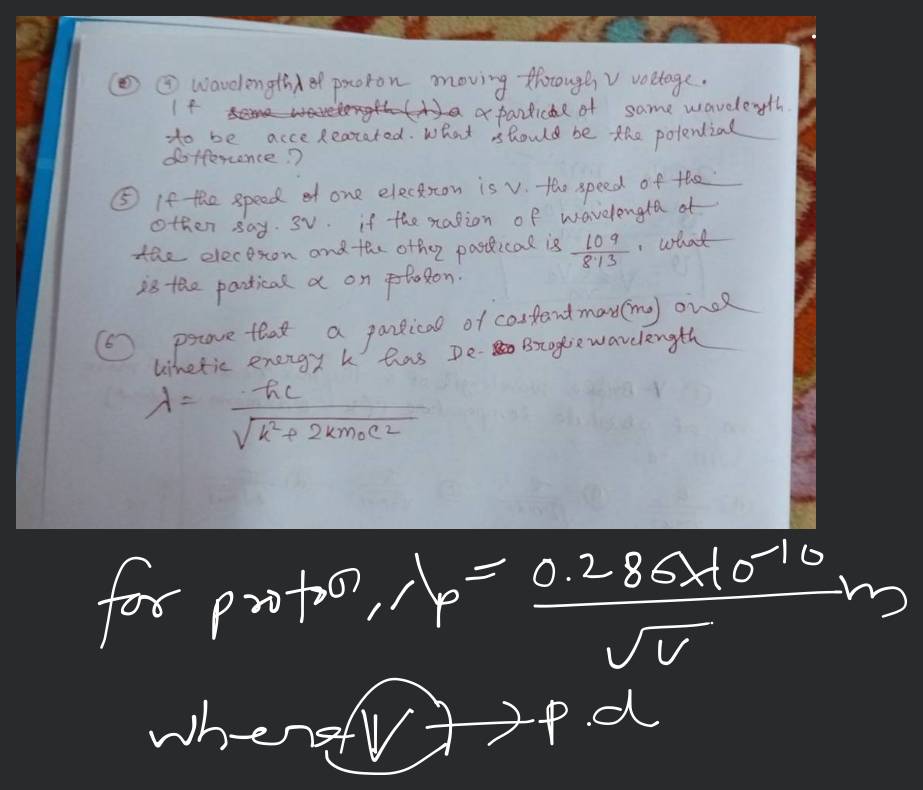 ④ wavelength λ of proton moving through V voltage.
If α particel of same wavelength.
to be acceleareted. What should be the potential
difference?
⑤ If the speed of one electron is v. the speed of the
other say. 3V. if the ration of wavelength of
the electron and the other partical is 109/8.13, what
is the partical α or photon.
⑥ prove that a partical of costant mass(m₀) and
kinetic energy k has De-Broglie wavelength
λ = hc / √k² + 2km₀c²
for proton, λp = 0.286×10⁻¹⁰/√V m
where V → p.d